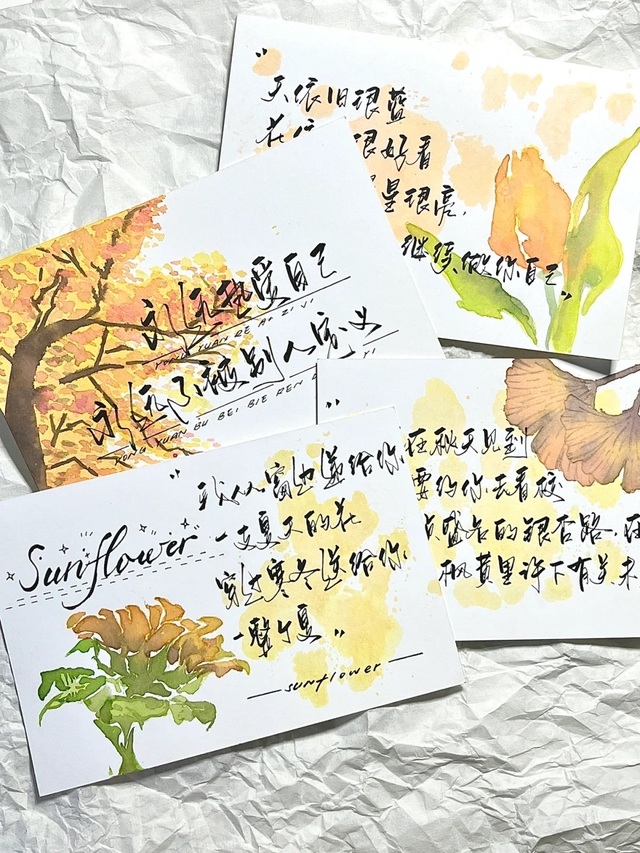 “天依旧很蓝
花
很好看
星很亮,
继续做你自己”
永远热爱自己
YONG YUAN RE AI ZI JI
永远不被别人定义
YONG YUAN BU BEI BIE REN
“
在秋天见到
要约你去看校
盛名的银杏路.在
枫黄里许下有关未
Sunflower
“我从窗边送给你
一支夏天的花
穿过寒冬送给你
一整个夏”
— sunflower —